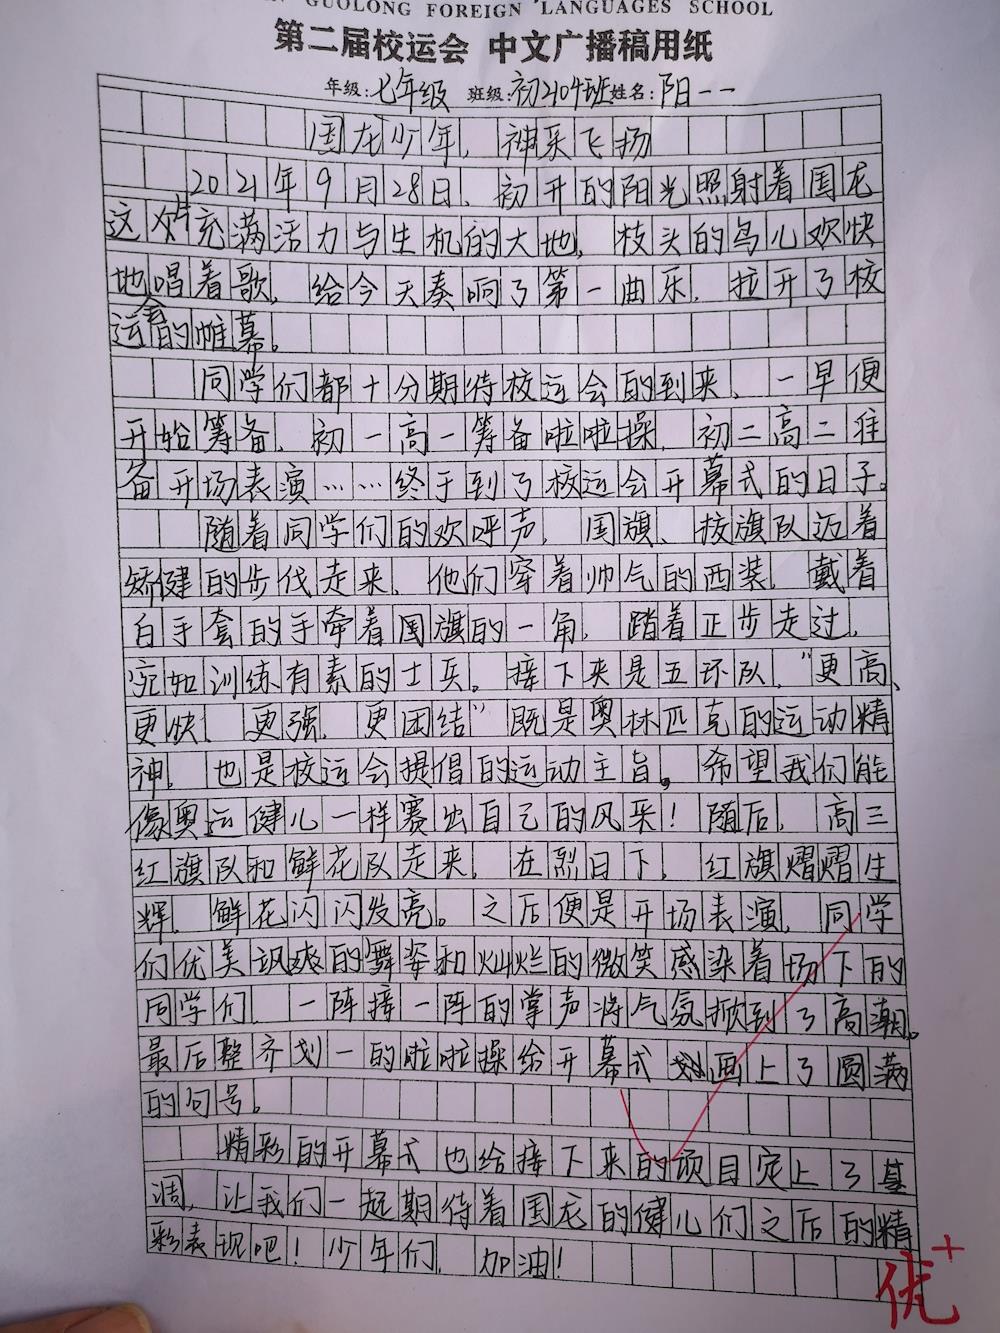 GUOLONG FOREIGN LANGUAGES SCHOOL
第二届校运会 中文广播稿用纸
年级:七年级 班级:初2104班姓名:阳一一
国龙少年，神采飞扬
2021年9月28日、初开的阳光照射着国龙
这次片充满活力与生机的大地，枝头的鸟儿欢快
地唱着歌，给今天奏响了第一曲乐，拉开了校
运会的帷幕。
同学们都十分期待校运会的到来，一早便
开始筹备，初一高一筹备啦啦操，初二高二准
备开场表演……终于到了校运会开幕式的日子。
随着同学们的欢呼声，国旗、校旗队迈着
矫健的步伐走来，他们穿着帅气的西装，戴着
白手套的手牵着国旗的一角，踏着正步走过，
宛如训练有素的士兵。接下来是五环队，“更高、
更快、更强、更团结”既是奥林匹克的运动精
神，也是校运会提倡的运动主旨。希望我们能
像奥运健儿一样赛出自己的风采！随后，高三
红旗队和鲜花队走来，在烈日下，红旗熠熠生
辉，鲜花闪闪发亮。之后便是开场表演，同学
们优美飒爽的舞姿和灿烂的微笑感染着场下的
同学们，一阵接一阵的掌声将气氛掀到了高潮。
最后整齐划一的啦啦操给开幕式画上了圆满
的句号。
精彩的开幕式也给接下来的项目定上了基
调，让我们一起期待着国龙的健儿们之后的精
彩表现吧！少年们，加油！
优+